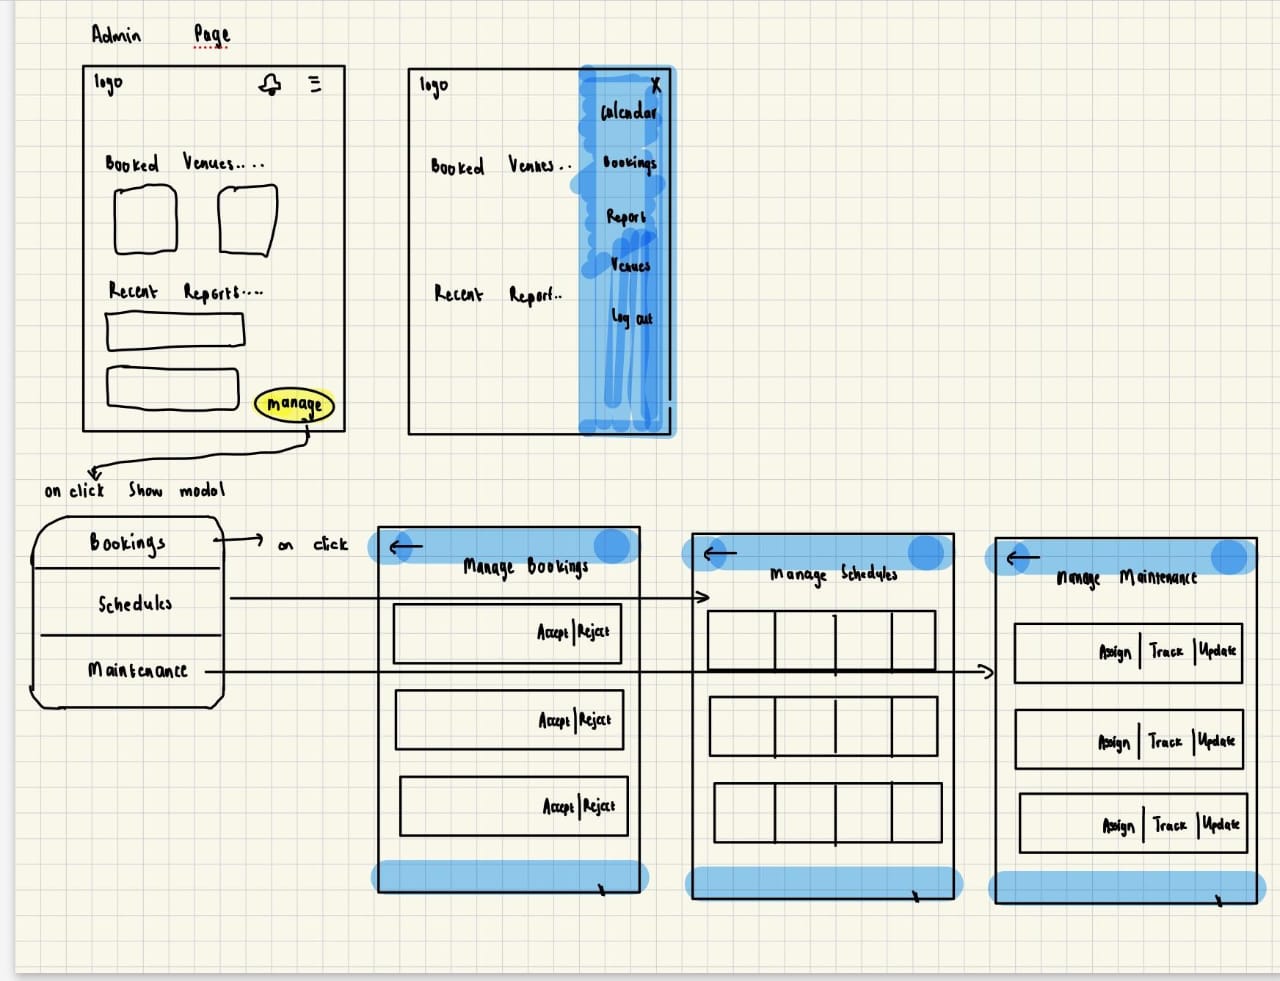 Admin Page
logo
Booked Venues....
Recent Reports....
manage
logo
X
Calendar
Bookings
Report
Venues
Log out
Booked Venues..
Recent Report..
on click Show modal
Bookings
on click
Schedules
Maintenance
Manage Bookings
Accept|Reject
Accept|Reject
Accept|Reject
Manage Schedules
Manage Maintenance
Assign | Track | Update
Assign | Track | Update
Assign | Track | Update